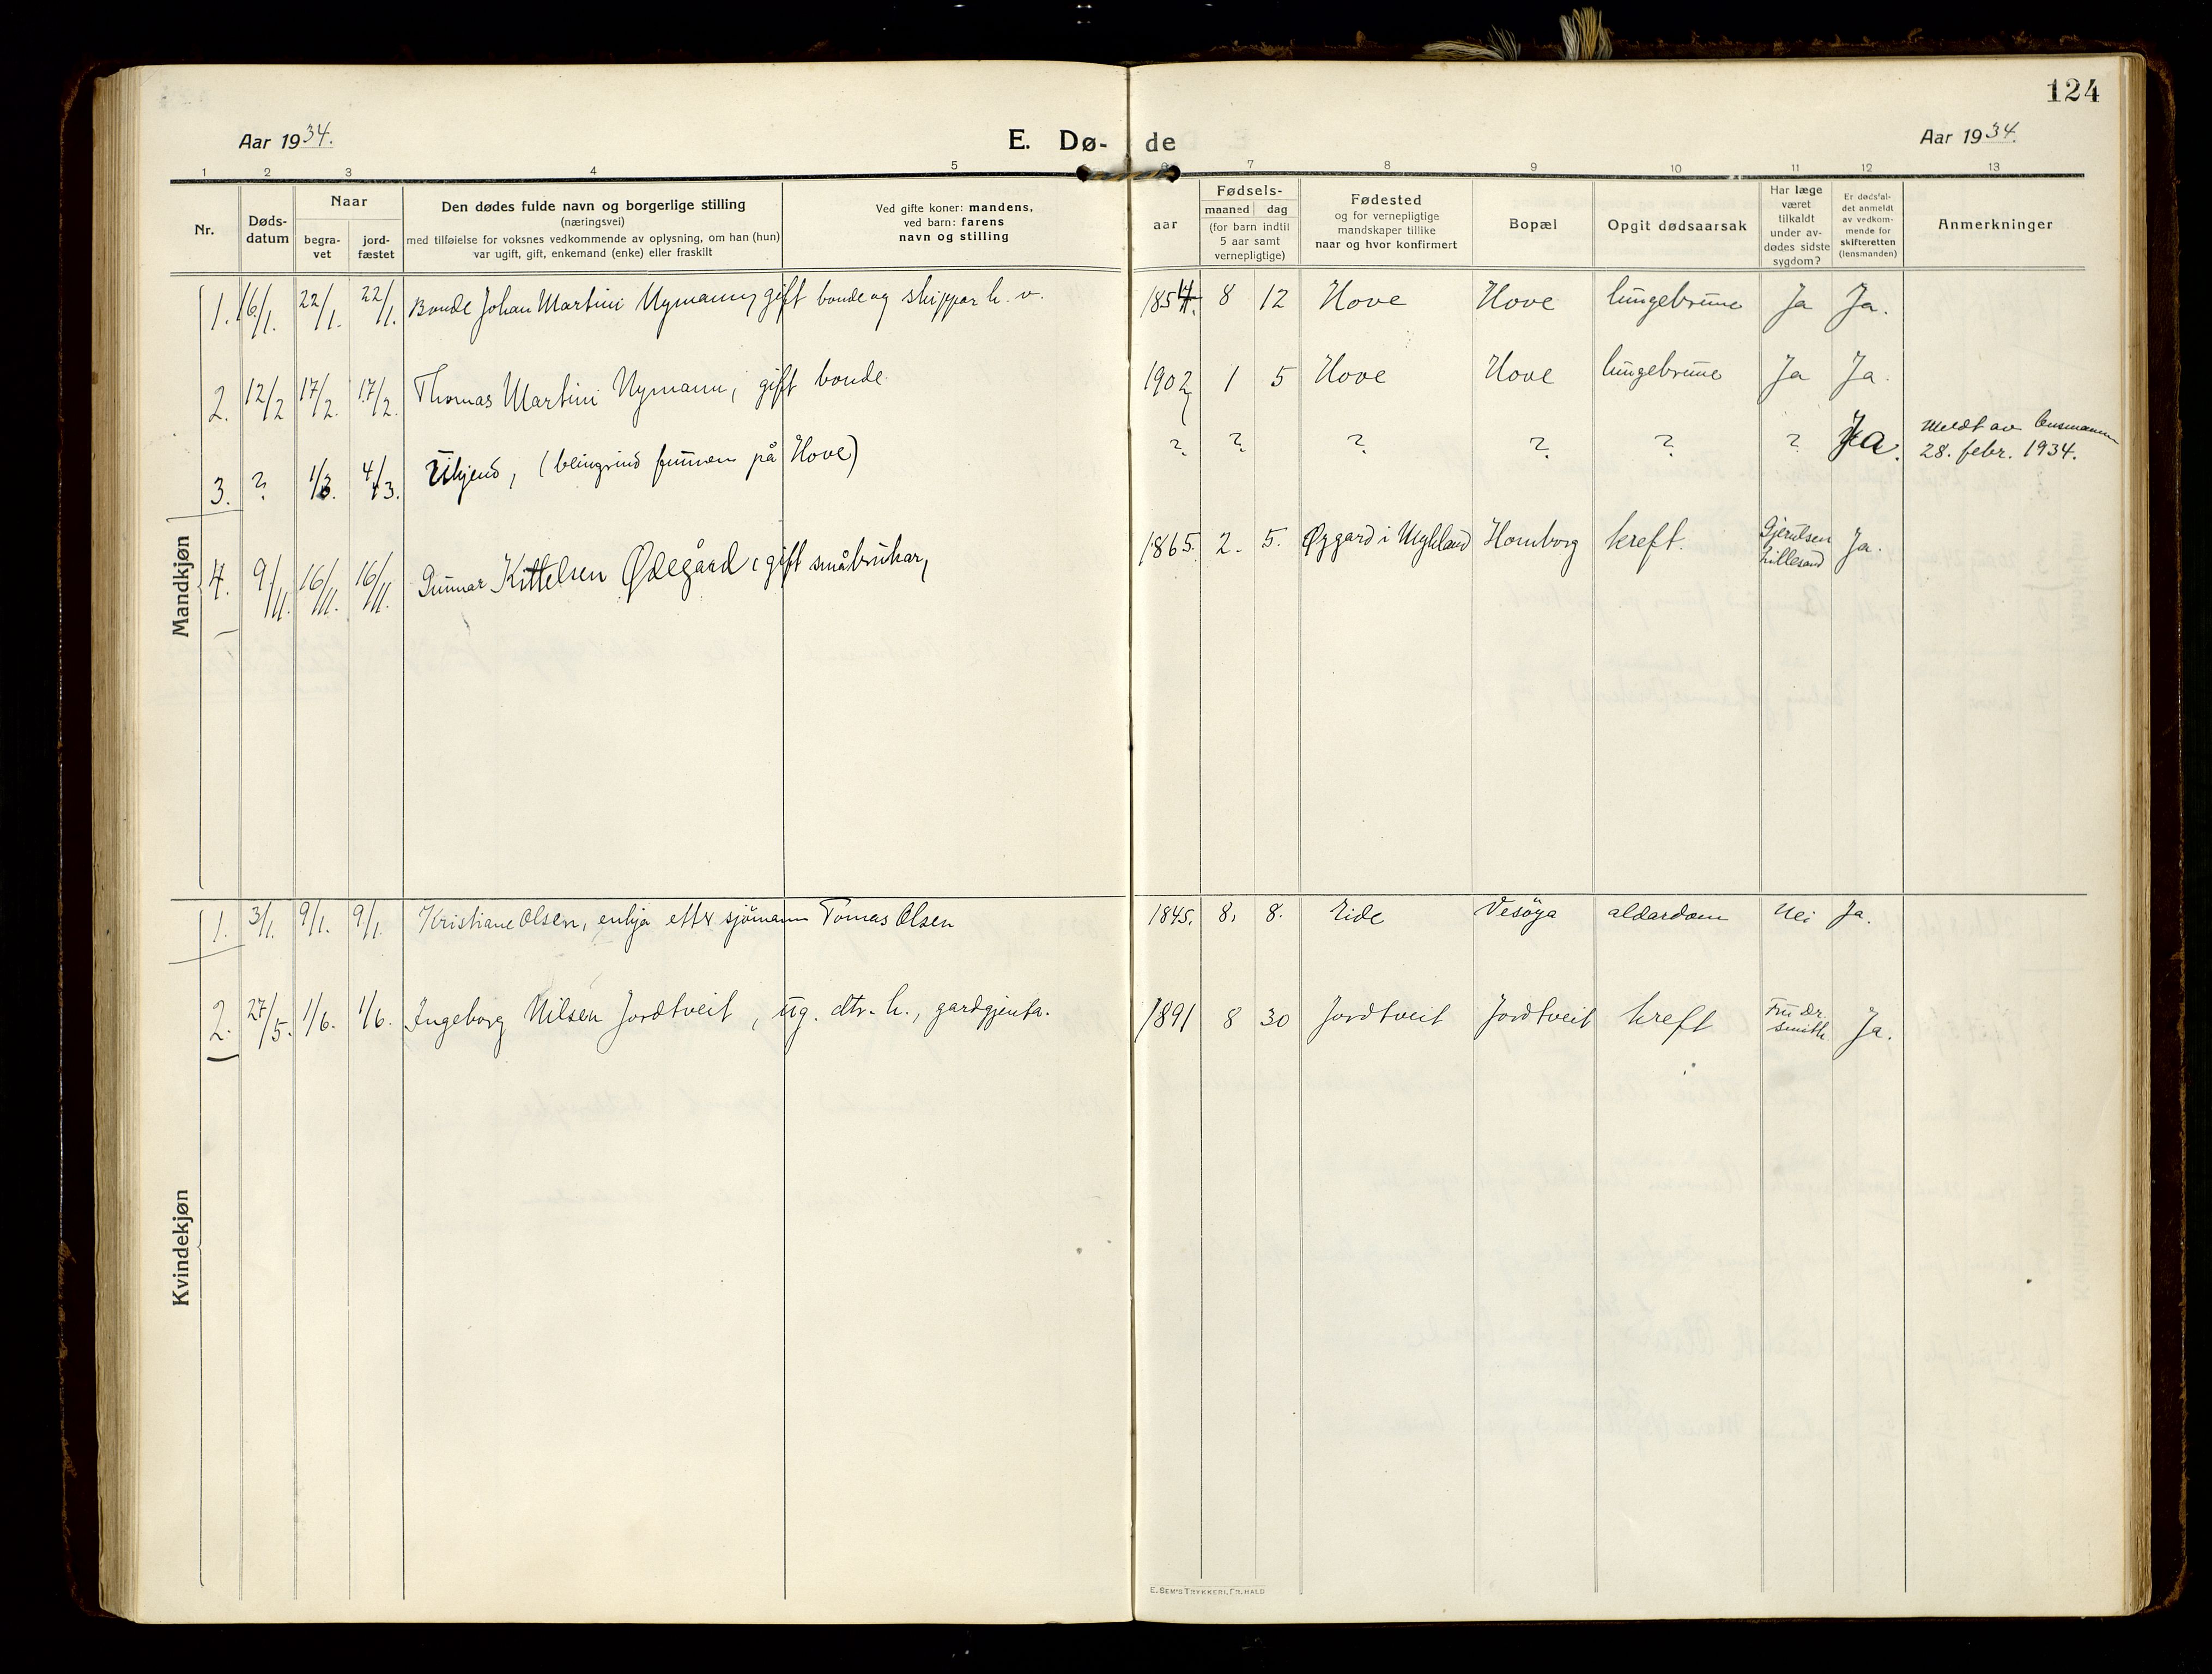 124
Aar 1934.
E. Dø- de
Aar 1934.
1 2 3 4 5 6 7 8 9 10 11 12 13
Nr.
Døds-
datum
Naar
begra-
vet
jord-
fæstet
Den dødes fulde navn og borgerlige stilling
(næringsvei)
med tilføielse for voksnes vedkommende av oplysning, om han (hun)
var ugift, gift, enkemand (enke) eller fraskilt
Ved gifte koner: mandens,
ved barn: farens
navn og stilling
aar
Fødsels-
maaned dag
(for barn indtil
5 aar samt
vernepligtige)
Fødested
og for vernepligtige
mandskaper tillike
naar og hvor konfirmert
Bopæl
Opgit dødsaarsak
Har læge
været
tilkaldt
under av-
dødes sidste
sygdom?
Er dødsfal-
det anmeldt
av vedkom-
mende for
skifteretten
(lensmanden)
Anmerkninger
Mandkjøn
1. 16/1. 22/1. 22/1. Bonde Johan Martini Nymann, gift bonde og skippar h. v. 1854. 8 12 Hove Hove lungebrune Ja Ja.
2. 12/2 17/2. 17/2. Thomas Martini Nymann, gift bonde 1902 1 5 Hove Hove lungebrune Ja Ja.
3. ? 1/3. 4/3. Ukjend, (beingrind funnen på Hove) ? ? ? ? ? ? Ja. Meldt av lensmann
28. febr. 1934.
4. 9/11. 16/11. 16/11. Gunnar Kittelsen Ødegård, gift småbrukar, 1865. 2. 5. Øygard i Vegusdal Homborg kreft. Gjerulsen
Lillesand Ja.
Kvindekjøn
1. 3/1. 9/1. 9/1. Kristiane Olsen, enkja etter sjömann Tomas Olsen 1845. 8. 8. Eide Vesöya aldardom Nei Ja.
2. 27/5. 1/6. 1/6. Ingeborg Nilsen Jordtveit, ug. dtr. h., gardgjenta. 1891 8 30 Jordtveit Jordtveit kreft Fru Dr.
Smith Ja.
E. SEM'S TRYKKERI, FR.HALD